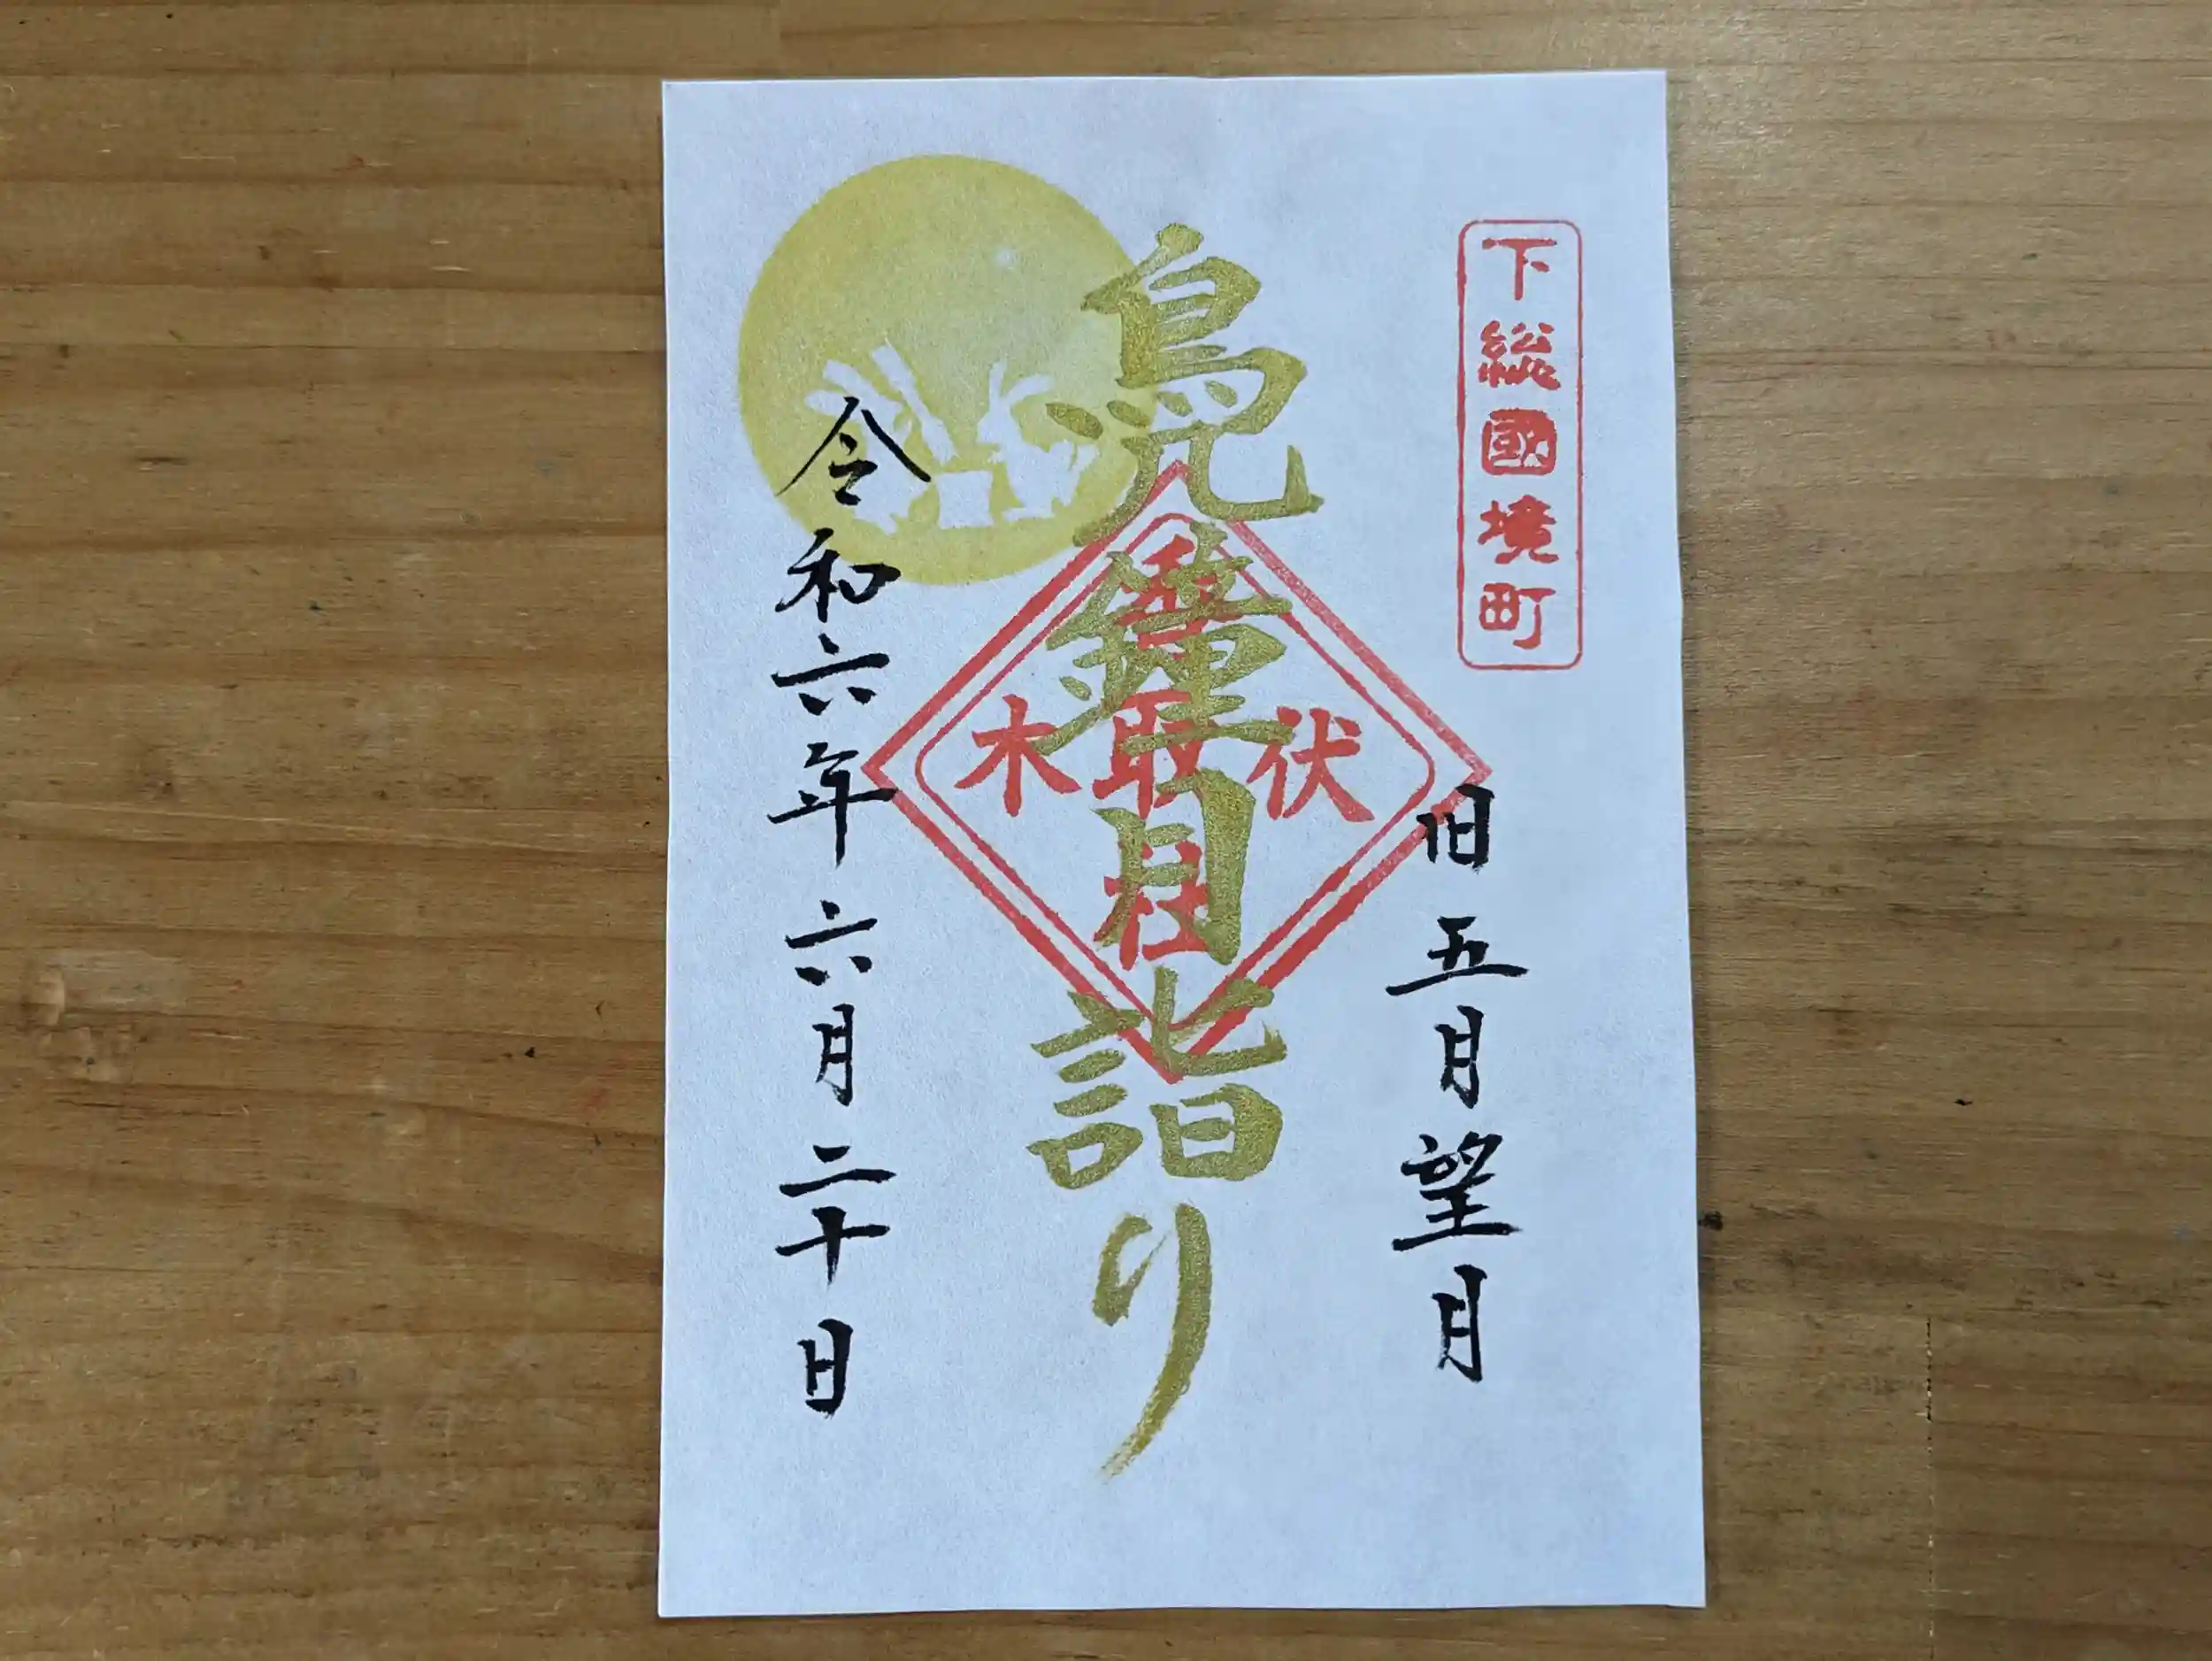 下総國境町
旧五月望月
鳧鐘月詣り
伏木
香取社
令和六年六月二十日